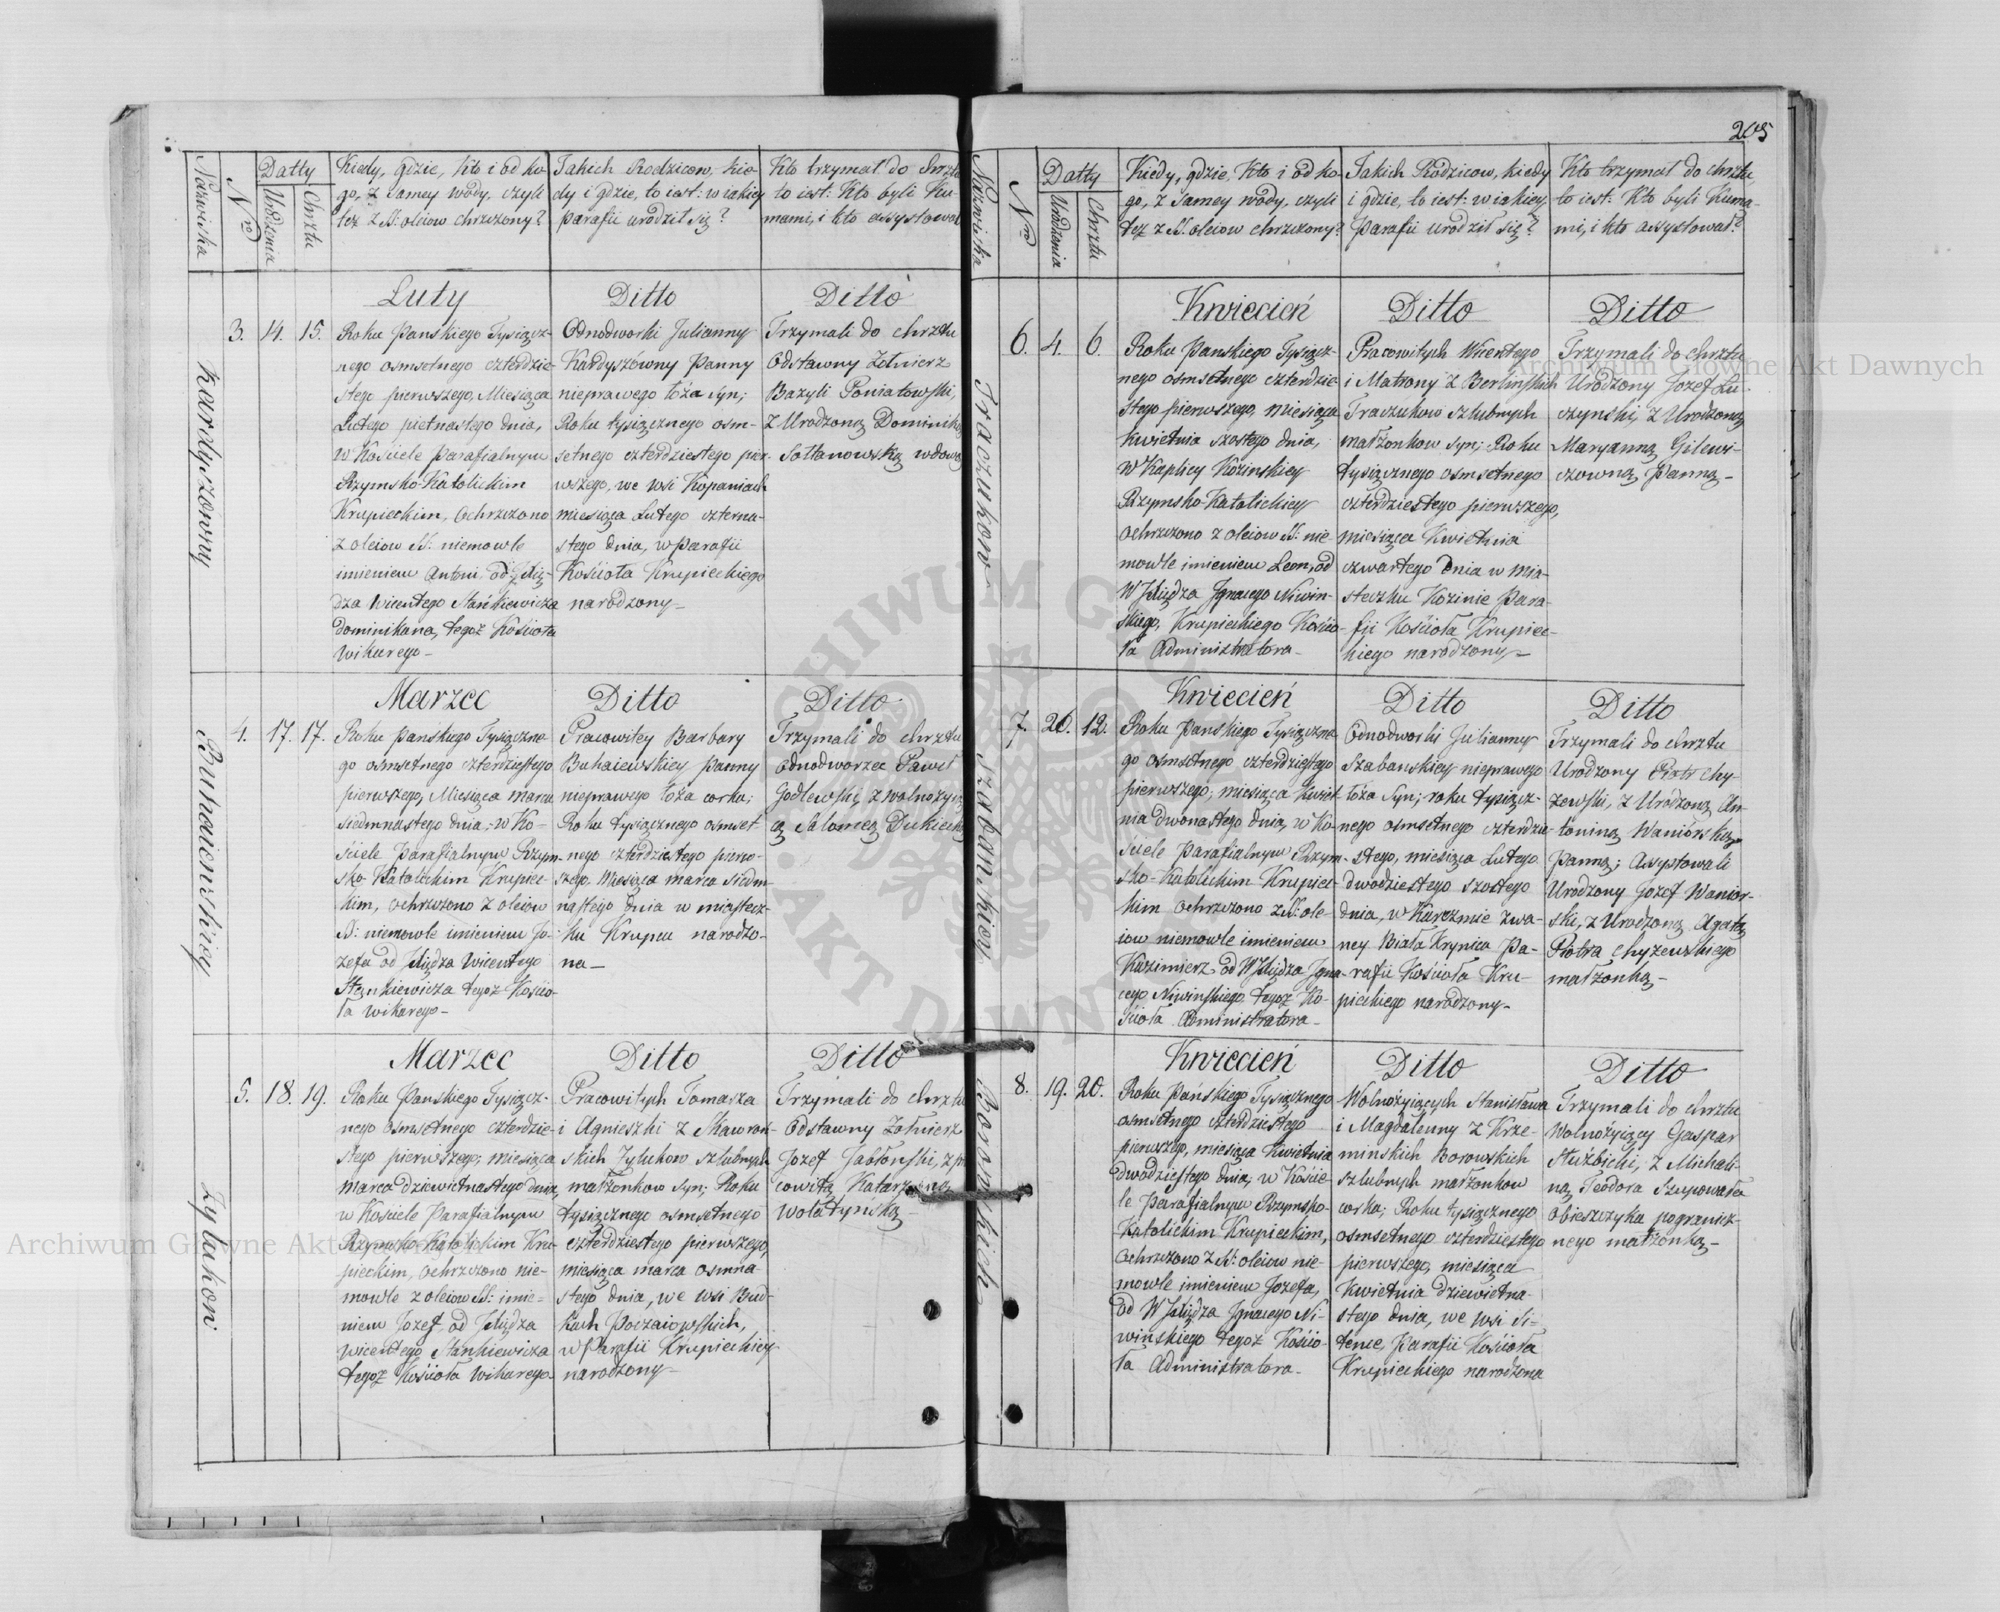 205
Nazwiska
Nro
Datty
Urodzenia
Chrztu
Kiedy, gdzie, Kto i od ko-
go, z samey wody, czyli
też z SS. oleiow chrzczony?
Jakich Rodzicow, kie-
dy i gdzie, to iest: w iakiey
parafii urodził się?
Kto trzymał do chrztu
to iest: Kto byli Ku-
mami, i kto assystował
Kardyszówny
3. 14. 15.
Luty
Roku Panskiego Tysiącz-
nego osmsetnego czterdzie-
stego pierwszego, Miesiąca
Lutego pietnastego dnia,
w Kościele Parafialnym
Rzymsko-Katolickim
Krupieckim, ochrzczono
z oleiow SS: niemowle
imieniem Antoni, od Xię-
dza Wicentego Stankiewicza
Dominikana, tegoż Kościoła
Wikarego-
Ditto
Odnodworki Julianny
Kardyszówny Panny
nieprawego łoża syn;
Roku tysiącznego osm-
setnego czterdziestego pier-
wszego, we wsi Kopaniach
miesiąca Lutego czterna-
stego dnia, w Parafii
Kościoła Krupieckiego
narodzony-
Ditto
Trzymali do chrztu
Odstawny Żołnierz
Bazyli Poniatowski,
z Urodzoną Dominiką
Sołtanowską wdową
Buhaiewskiey
4. 17. 17.
Marzec
Roku Panskiego Tysiączne-
go osmsetnego czterdziestego
pierwszego, Miesiąca marca
siedmnastego dnia; w Ko-
ściele Parafialnym Rzym-
sko-Katolickim Krupiec-
kim, ochrzczono z oleiow
S: niemowle imieniem Jo-
zefa od Xiędza Wicentego
Stankiewicza tegoż Kościo-
ła Wikarego-
Ditto
Pracowitey Barbary
Buhaiewskiey Panny
nieprawego łoża corka;
Roku tysiącznego osmset-
nego czterdziestego pierw-
szego, Miesiąca marca siedm-
nastego dnia w miastecz-
ku Krupcu narodzo-
na-
Ditto
Trzymali do chrztu
Odnodworzec Paweł
Godlewski, z wolnożyią-
cą Salomeą
Zylukow
5. 18. 19.
Marzec
Roku Panskiego Tysiącz-
nego osmsetnego czterdzie-
stego pierwszego, miesiąca
marca dziewietnastego dnia,
w Kościele Parafialnym
Rzymsko-Katolickim Kru-
pieckim, ochrzczono nie-
mowle z oleiow SS: imie-
niem Jozef, od Xiędza
Wicentego Stankiewicza
tegoż Kościoła Wikarego-
Ditto
Pracowitych Tomasza
i Agnieszki z Skawron-
skich Zylukow szlubnych
małżonkow syn; Roku
tysiącznego osmsetnego
czterdziestego pierwszego,
miesiąca marca osmna-
stego dnia, we wsi Bud-
kach Poczaiowskich,
w Parafii Krupieckiey
narodzony-
Ditto
Trzymali do chrztu
Odstawny Żołnierz
Jozef Jabłonski, z pra-
cowitą Katarzyną
Wołatynską-
Nazwiska
Nro
Datty
Urodzenia
Chrztu
Kiedy, gdzie, Kto i od ko-
go, z samey wody, czyli
też z SS. oleiow chrzczony?
Jakich Rodzicow, kiedy
i gdzie, to iest: w iakiey
Parafii urodził się?
Kto trzymał do chrztu,
to iest: Kto byli Kuma-
mi, i kto assystował?
Traczukow
6. 4. 6.
Kwiecień
Roku Panskiego Tysiącz-
nego osmsetnego czterdzie-
stego pierwszego, miesiąca
Kwietnia szostego dnia,
w Kaplicy Kozinskiey
Rzymsko-Katolickiey
ochrzczono z oleiow SS: nie-
mowle imieniem Leon, od
W Xiędza Ignacego Niwin-
skiego, Krupieckiego Kościo-
ła Administratora-
Ditto
Pracowitych Wicentego
i Matrony z Berlinskich
Traczukow szlubnych
małżonkow syn; Roku
tysiącznego osmsetnego
czterdziestego pierwszego,
miesiąca Kwietnia
czwartego dnia w mia-
steczku Kozinie Para-
fii Kościoła Krupiec-
kiego narodzony-
Ditto
Trzymali do chrztu
Urodzony Jozef Łu-
czynski, z Urodzoną
Maryanną Gilewi-
czowną Panną-
Szabanskiey
7. 26. 12.
Kwiecień
Roku Panskiego Tysiączne-
go osmsetnego czterdziestego
pierwszego; miesiąca Kwiet-
nia dwonastego dnia, w Ko-
ściele Parafialnym Rzym-
sko-Katolickim Krupiec-
kim ochrzczono z SS: ole-
iow niemowle imieniem
Kazimierz od W Xiędza Igna-
cego Niwinskiego tegoż Ko-
ścioła Administratora-
Ditto
Odnodworki Julianny
Szabanskiey nieprawego
łoża syn; roku tysiącz-
nego osmsetnego czterdzie-
stego, miesiąca Lutego
dwudziestego szostego
dnia, w Karczmie zwa-
ney Biała Krynica Pa-
rafii Kościoła Kru-
pieckiego narodzony-
Ditto
Trzymali do chrztu
Urodzony Piotr Chy-
żewski, z Urodzoną An-
toniną Waniorską
Panną; Assystowali
Urodzony Jozef Wanior-
ski, z Urodzoną Agatą
Piotra Chyżewskiego
małżonką-
Borowskich
8. 19. 20.
Kwiecień
Roku Pańskiego Tysiącznego
osmsetnego czterdziestego
pierwszego, miesiąca Kwietnia
dwodziestego dnia, w Koście-
le Parafialnym Rzymsko-
Katolickim Krupieckim,
ochrzczono z SS: oleiow nie-
mowle imieniem Jozefa,
od W Xiędza Ignacego Ni-
winskiego tegoż Kościo-
ła Administratora-
Ditto
Wolnożyiących Stanisława
i Magdalenny z Krze-
minskich Borowskich
szlubnych małżonkow
corka; Roku tysiącznego
osmsetnego czterdziestego
pierwszego, miesiąca
Kwietnia dziewietna-
stego dnia, we wsi Si-
tence, Parafii Kościoła
Krupieckiego narodzona
Ditto
Trzymali do chrztu
Wolnożyiący Gaspar
Służbicki, z Michali-
ną, Teodora Szupowała
Obieszczyka pogranicz-
nego małżonką-
Archiwum Główne Akt Dawnych
Archiwum Główne Akt Dawnych
ARCHIWUM GŁÓWNE AKT DAWNYCH